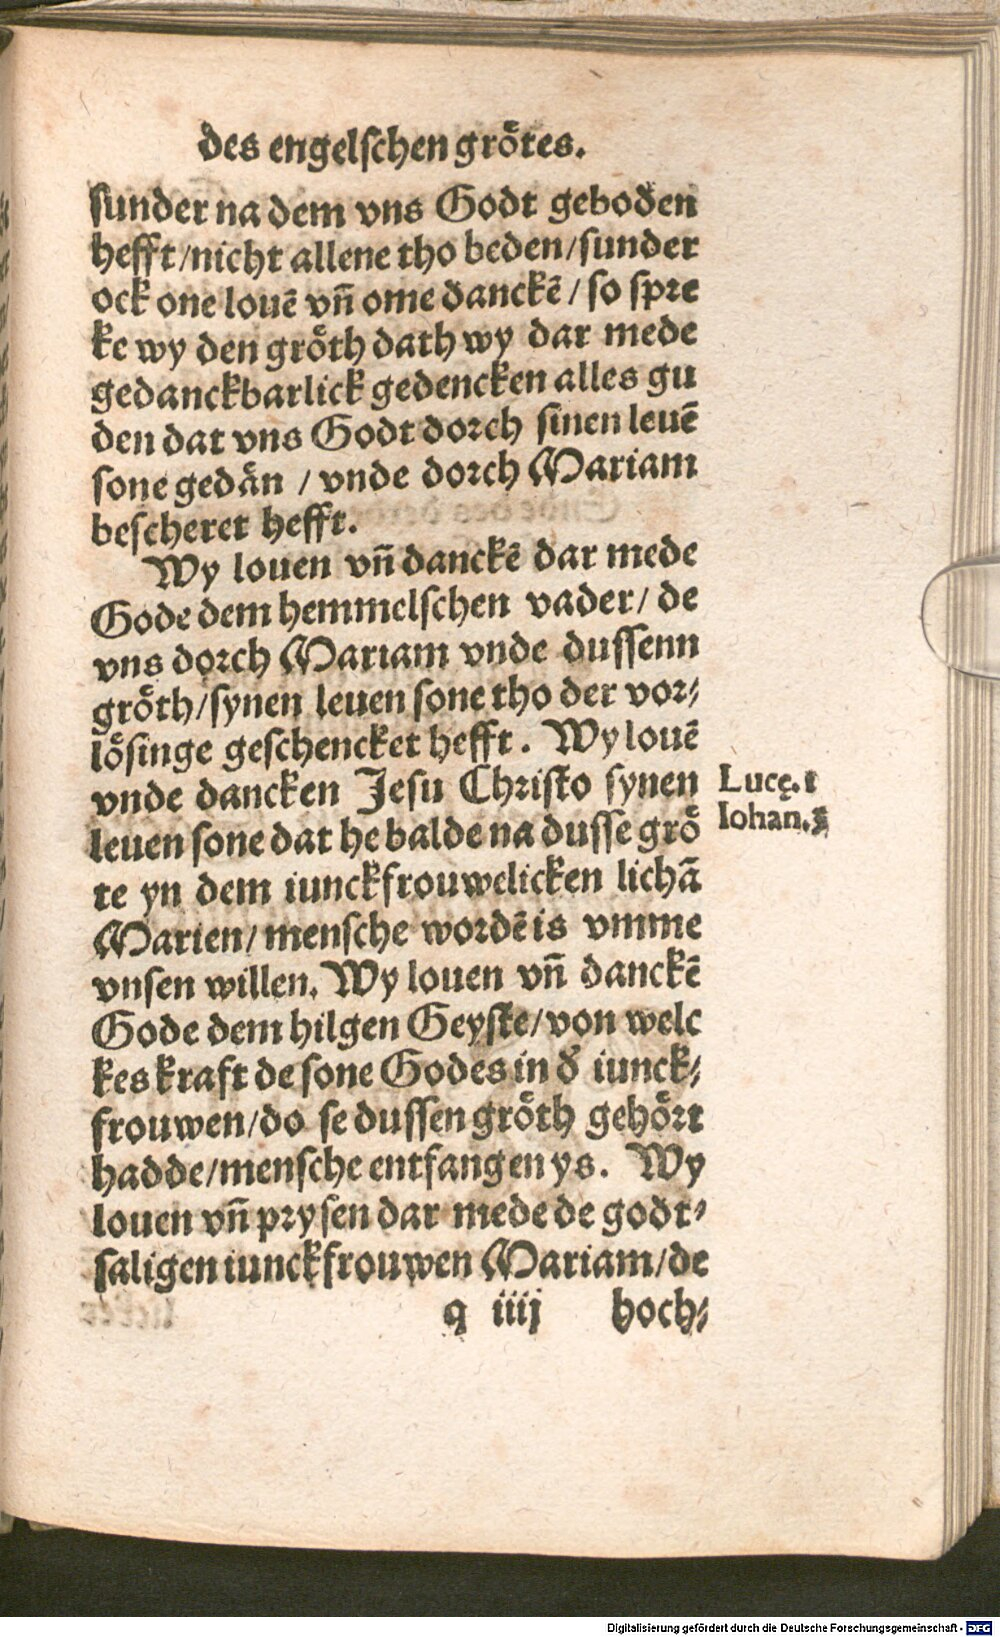 des engelschen grötes.
sunder na dem vns Godt geboden
hefft/nicht allene tho beden/sunder
ock one louē vn̄ ome danckē / so spre
ke wy den gröth dath wy dar mede
gedanckbarlick gedencken alles gu
den dat vns Godt dorch sinen leuē
sone gedån / vnde dorch Mariam
bescheret hefft.
Wy louen vn̄ danckē dar mede
Gode dem hemmelschen vader/ de
vns dorch Mariam vnde dussenn
gröth/synen leuen sone tho der vor⸗
lösinge geschencket hefft. Wy louē
vnde dancken Jesu Christo synen
leuen sone dat he balde na dusse grö
te yn dem iunckfrouwelicken lichā
Marien/ mensche wordē is vmme
vnsen willen. Wy louen vn̄ danckē
Gode dem hilgen Geyste/von welc
kes kraft de sone Godes in d᷑ iunck⸗
frouwen/do se dussen gröth gehört
hadde/mensche entfangen ys. Wy
louen vn̄ prysen dar mede de godt⸗
saligen iunckfrouwen Mariam/de
q iiij hoch⸗
Lucę.1
Iohan.
Digitalisierung gefördert durch die Deutsche Forschungsgemeinschaft - DFG